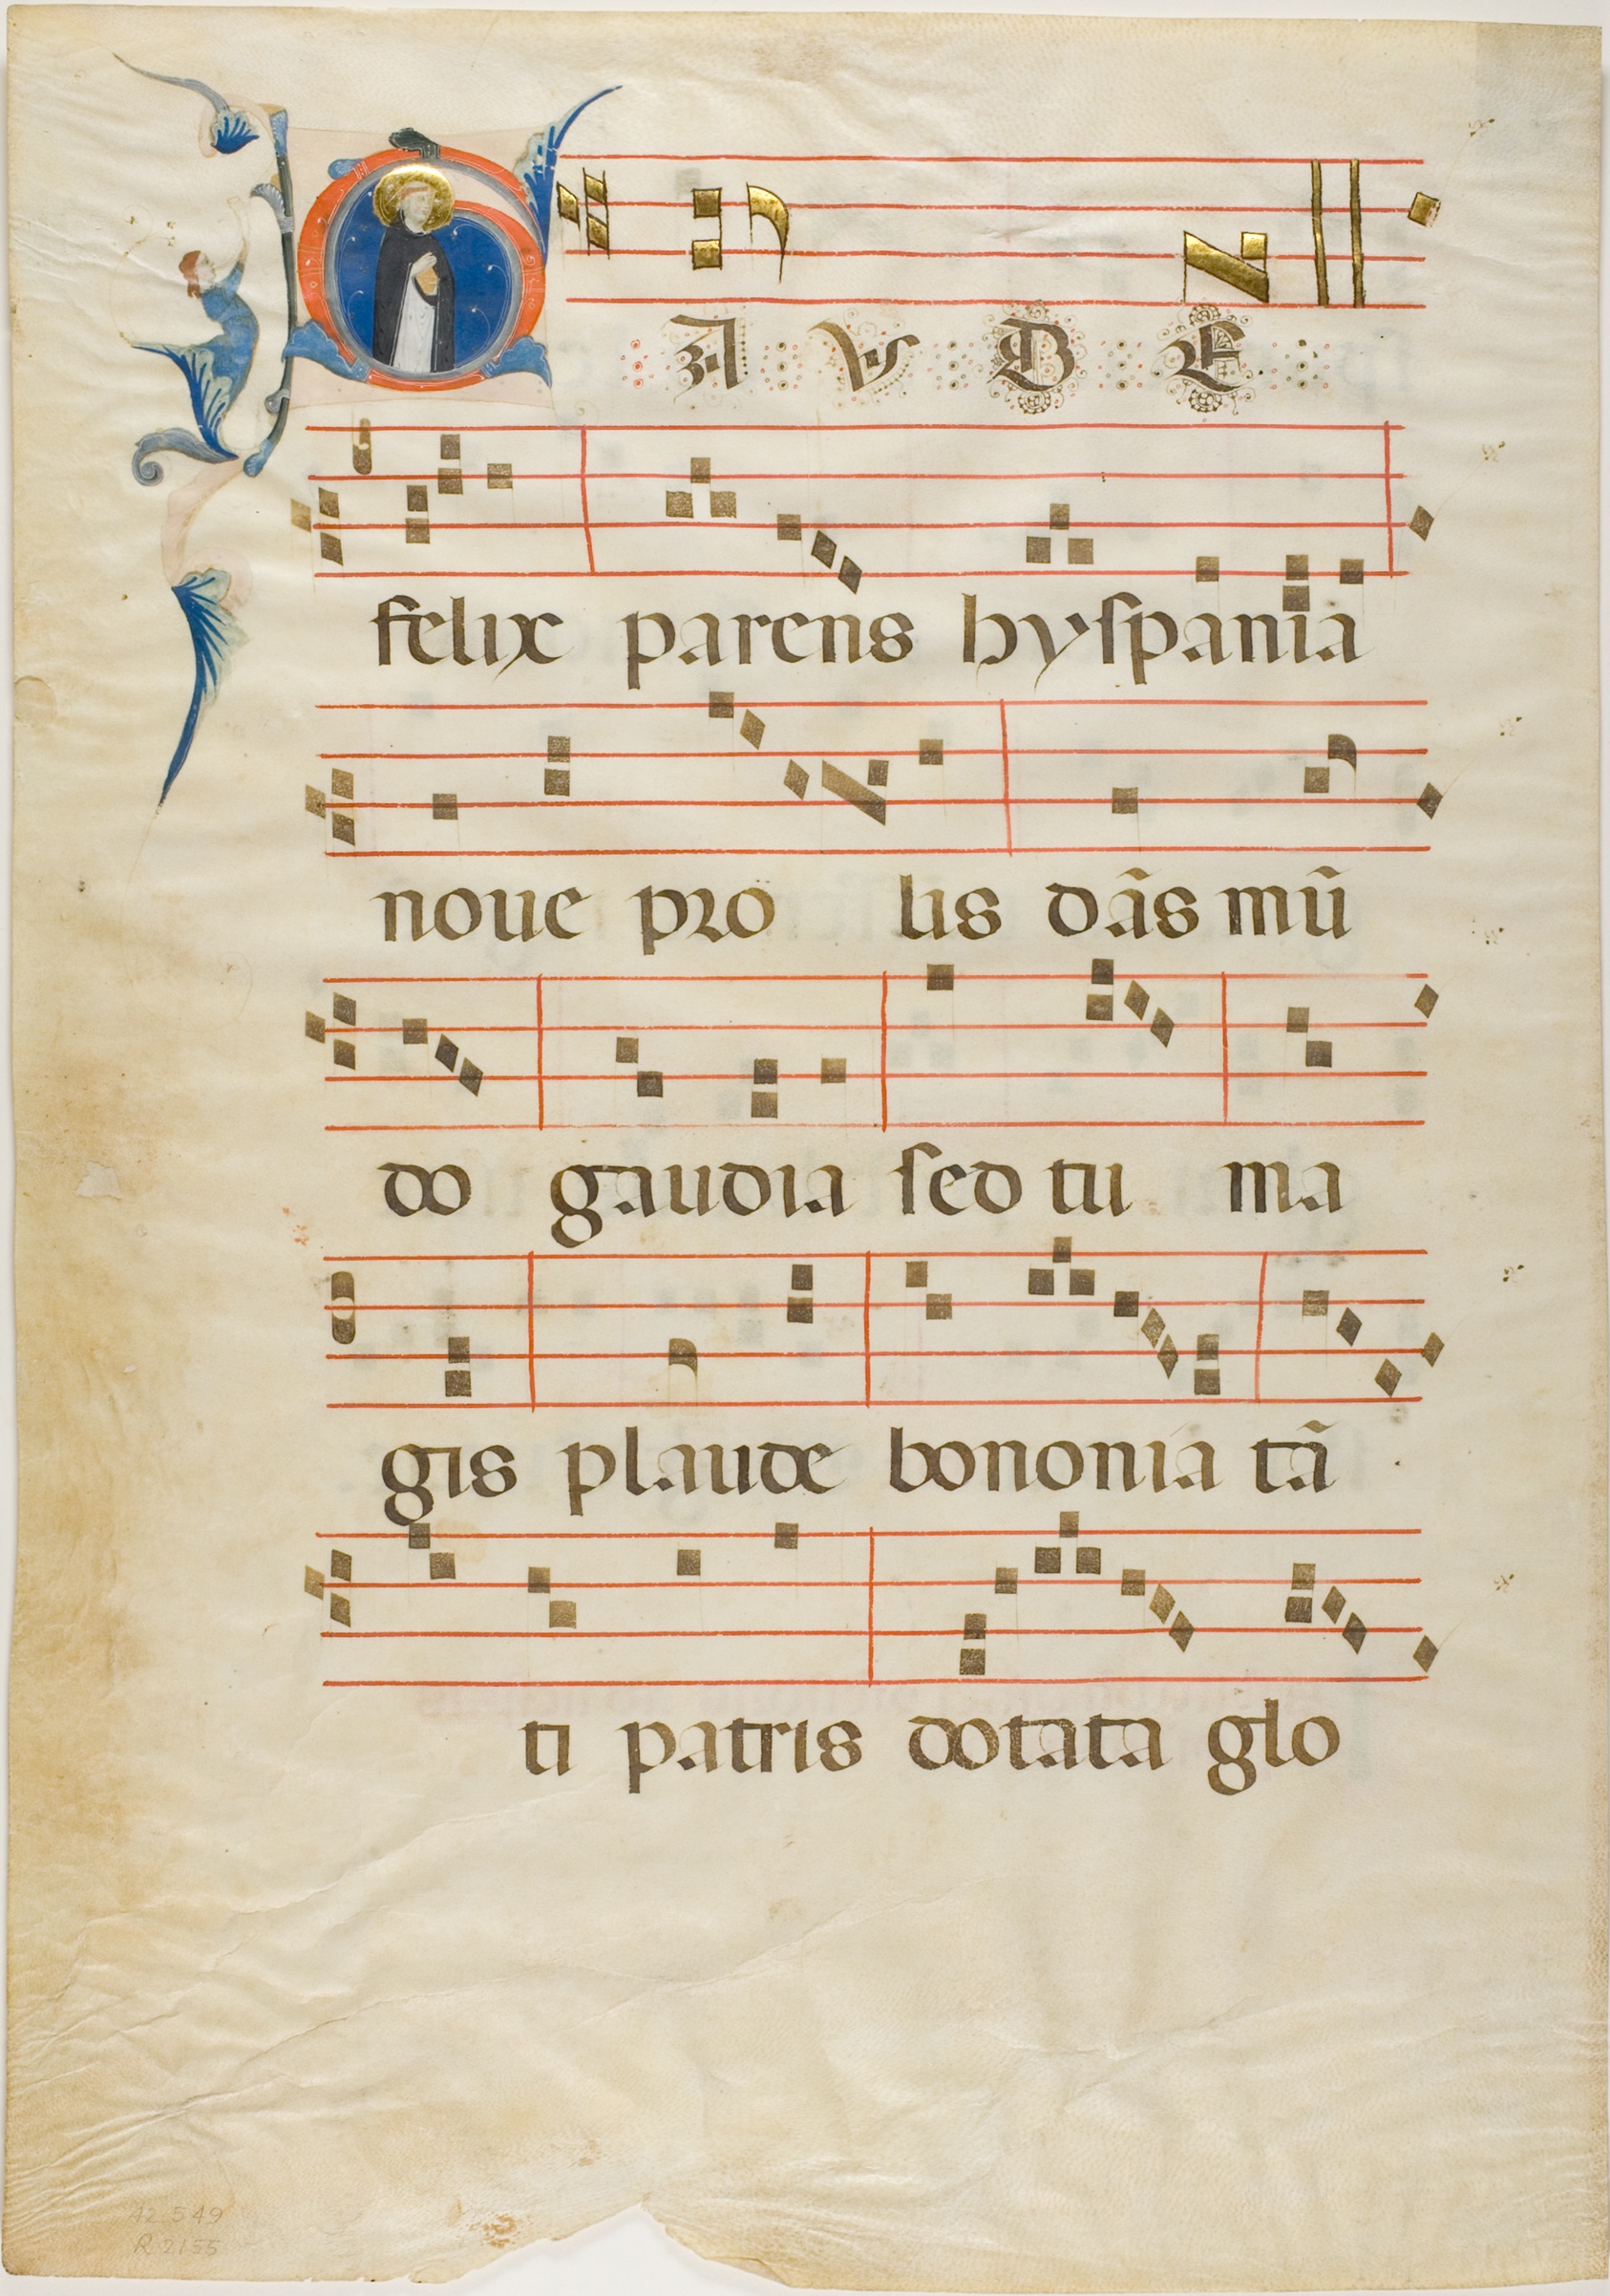 GAUDE
felix parens hyſpania
noue pro lis dãs mũ
do gaudia ſed tu ma
gis plaude bononia tã
ti patris dotata glo
42.549
R2155